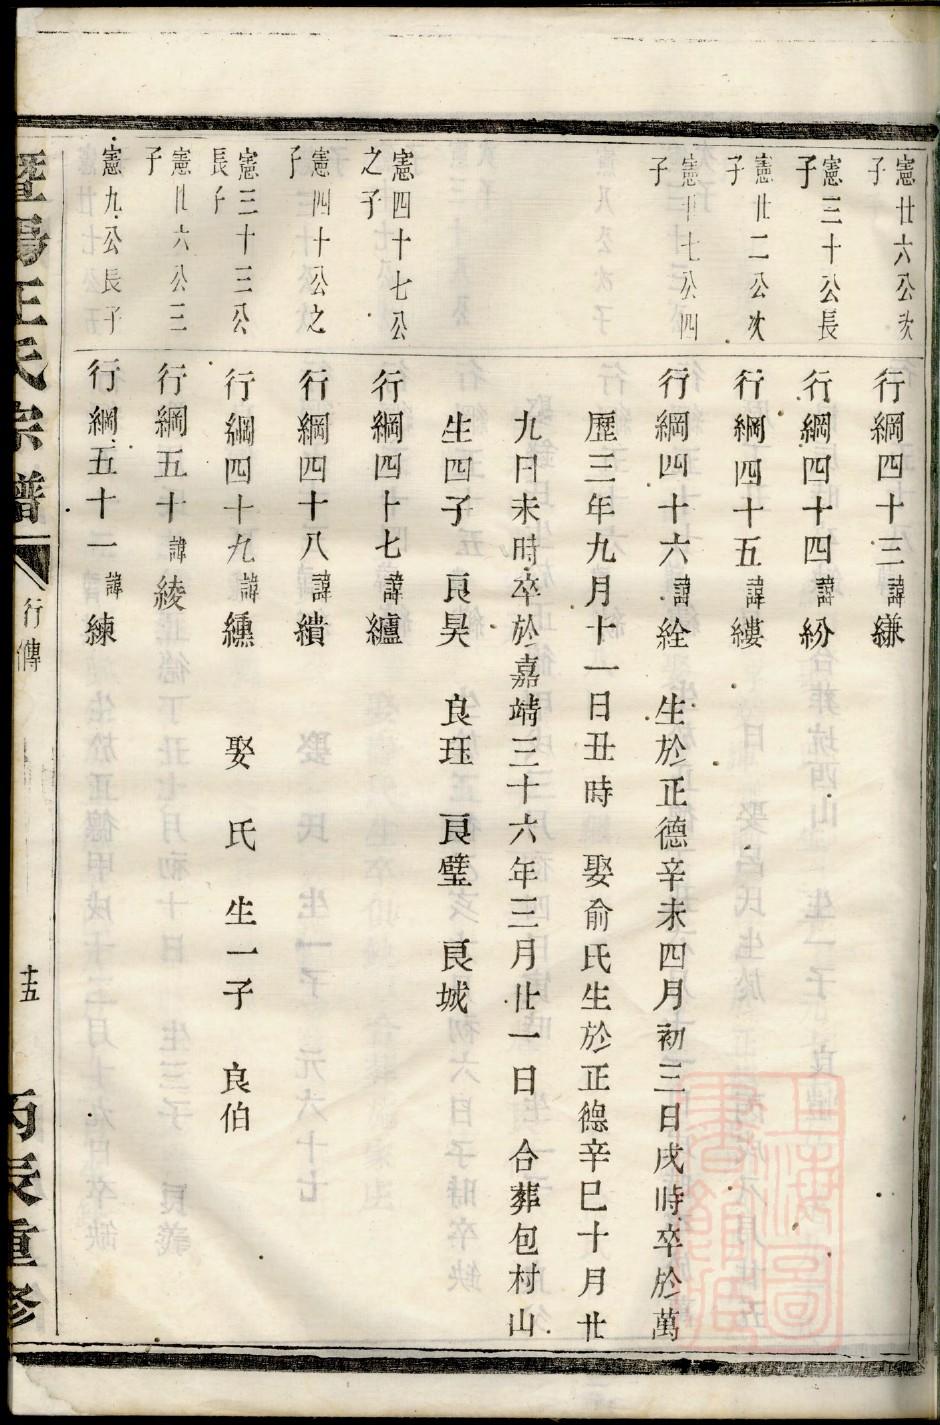 憲廿六公次子
行綱四十三諱縑
憲三十公長子
行綱四十四諱紛
憲廿二公次子
行綱四十五諱縷
憲廿七公四子
行綱四十六諱絟　生於正德辛未四月初三日戌時卒於萬
歷三年九月十一日丑時　娶俞氏生於正德辛巳十月廿
九日未時卒於嘉靖三十六年三月廿一日　合葬包村山
生四子　良昊　良珏　良璧　良城
憲四十七公之子
行綱四十七諱纑
憲四十公之子
行綱四十八諱繢
憲三十三公長子
行綱四十九諱纁　娶　氏　生一子　良伯
憲廿六公三子
行綱五十諱綾
憲九公長子
行綱五十一諱練
暨陽王氏宗譜
行傳
十五
丙辰重修
上海圖書館藏